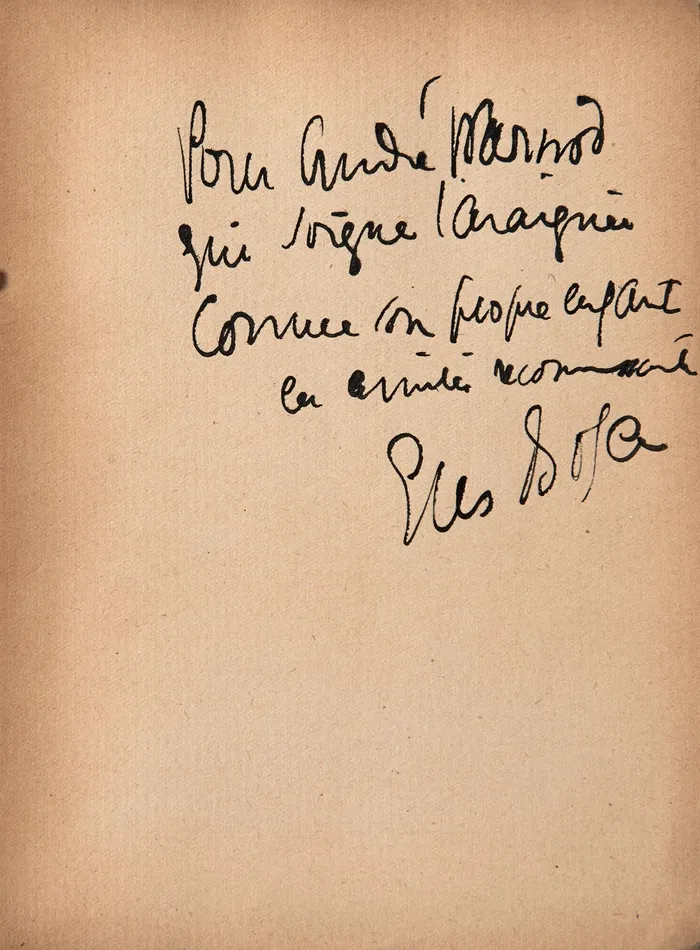 Pour André Warnod
qui soigne l'araignée
Comme son propre enfant
en amitié reconnaissante
Gus Bofa